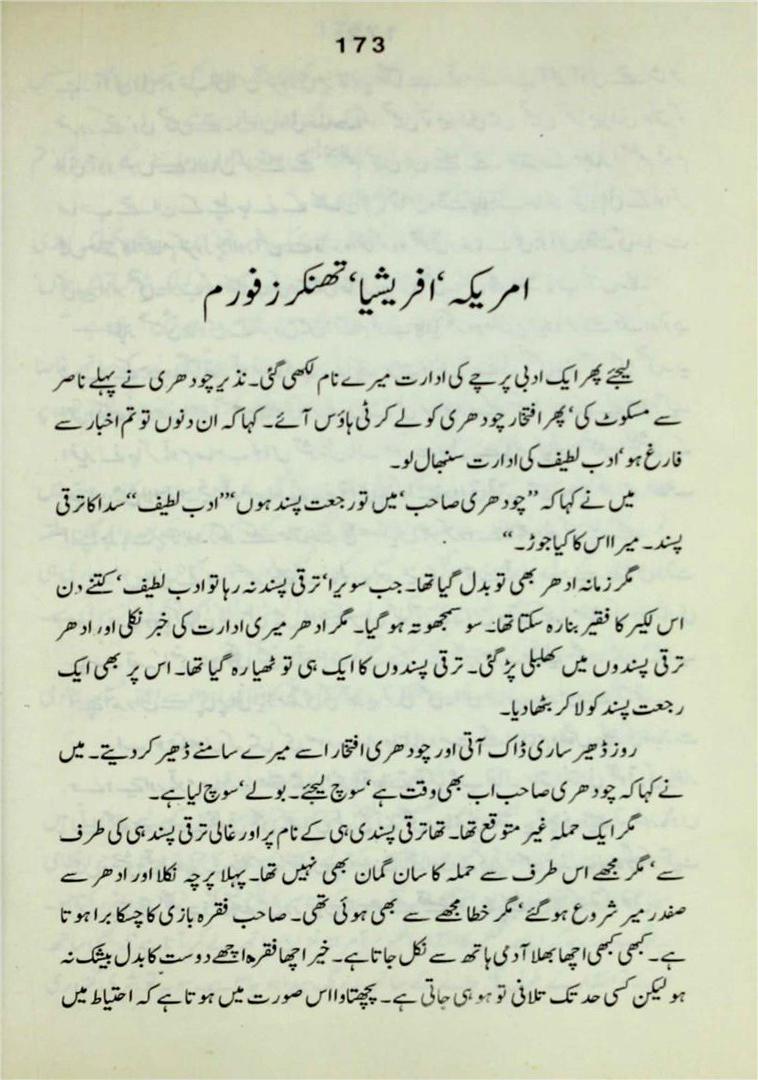 173
امریکہ، افریشیا، تھنکرز فورم
لیجئے پھر ایک ادبی پرچے کی ادارت میرے نام لکھی گئی۔ نذیر چودھری نے پہلے ناصر
سے مسکوٹ کی، پھر افتخار چودھری کو لے کر ٹی ہاؤس آئے۔ کہا کہ ان دنوں تو تم اخبار سے
فارغ ہو، ادب لطیف کی ادارت سنبھال لو۔
میں نے کہا کہ ”چودھری صاحب، میں تو رجعت پسند ہوں، ”ادب لطیف“ سدا کا ترقی
پسند۔ میرا اس کا کیا جوڑ۔“
مگر زمانہ ادھر بھی تو بدل گیا تھا۔ جب سویرا، ترقی پسند نہ رہا تو ادب لطیف، کتنے دن
اس لکیر کا فقیر بنا رہ سکتا تھا۔ سو سمجھوتہ ہو گیا۔ مگر ادھر میری ادارت کی خبر نکلی اور ادھر
ترقی پسندوں میں کھلبلی پڑ گئی۔ ترقی پسندوں کا ایک ہی تو ٹھیا رہ گیا تھا۔ اس پر بھی ایک
رجعت پسند کو لا کر بٹھا دیا۔
روز ڈھیر ساری ڈاک آتی اور چودھری افتخار اسے میرے سامنے ڈھیر کر دیتے۔ میں
نے کہا کہ چودھری صاحب اب بھی وقت ہے، سوچ لیجئے۔ بولے، سوچ لیا ہے۔
مگر ایک حملہ غیر متوقع تھا۔ تھا ترقی پسندی ہی کے نام پر اور غالی ترقی پسند ہی کی طرف
سے، مگر مجھے اس طرف سے حملہ کا سان گمان بھی نہیں تھا۔ پہلا پرچہ نکلا اور ادھر سے
صفدر میر شروع ہو گئے، مگر خطا مجھے سے بھی ہوئی تھی۔ صاحب فقرہ بازی کا چسکا برا ہوتا
ہے۔ کبھی کبھی اچھا بھلا آدمی ہاتھ سے نکل جاتا ہے۔ خیر اچھا فقرہ اچھے دوست کا بدل بیشک نہ
ہو لیکن کسی حد تک تلافی تو ہو ہی جاتی ہے۔ پچھتاوا اس صورت میں ہوتا ہے کہ احتیاط میں